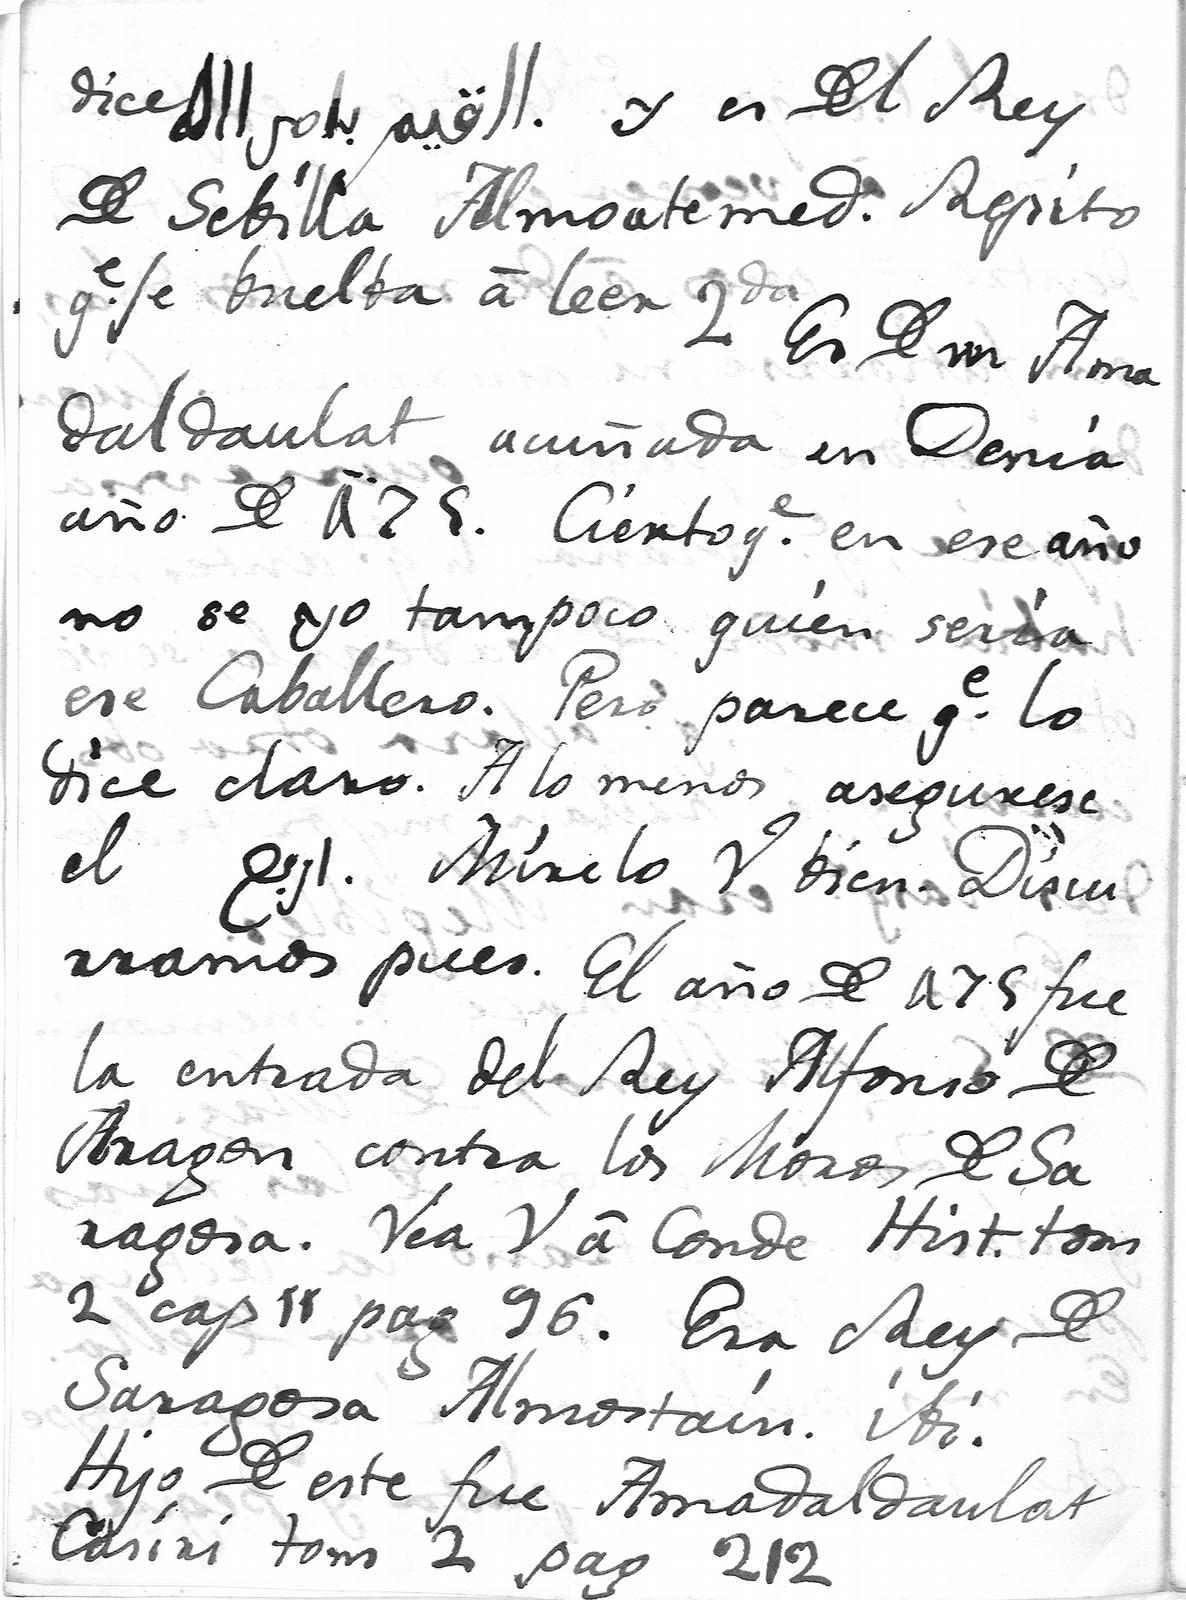 dice المويد بنصر الله. y es Del Rey
De Sebilla Almoatemed. Repito
qe. se buelba â leer 2da Es De un Ama
daldaulat acuñada en Denia
año De 475. Cierto qe. en ese año
no se yo tampoco quien seria
ese Caballero. Pero parece qe. lo
dice claro. A lo menos asegurese
el. Mirelo V bien. Discu
rramos pues. El año De 475 fue
la entrada del Rey Alfonso De
Aragon contra los Moros De Sa
ragosa. Vea V â Conde Hist. tom
2 cap 11 pag 96. Era Rey De
Saragosa Almostain. ibi.
Hijo De este fue Amadaldaulat
Casiri tom 2 pag 212